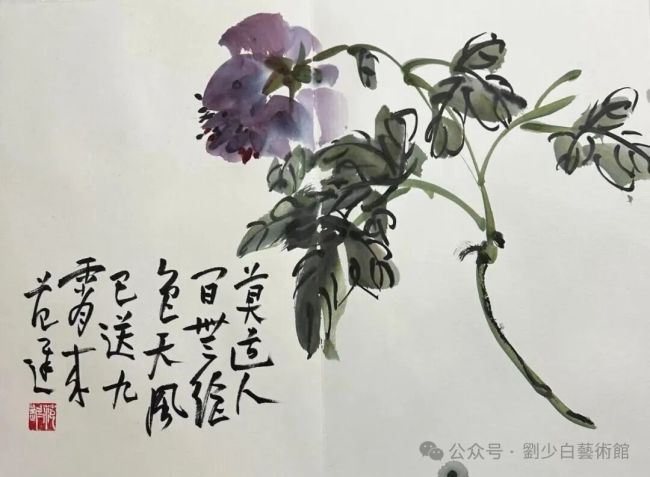 莫道人
間無絕
色天風
已送九
霄來
公众号 · 劉少白藝術館